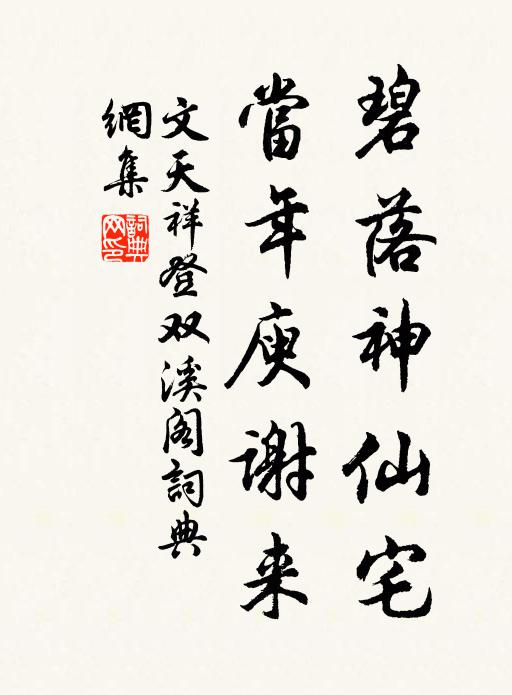 碧落神仙宅
當年庾謝来
文天祥登双溪阁詞典
網集
詞典
网印